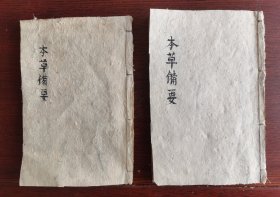 本草備要
本草備要